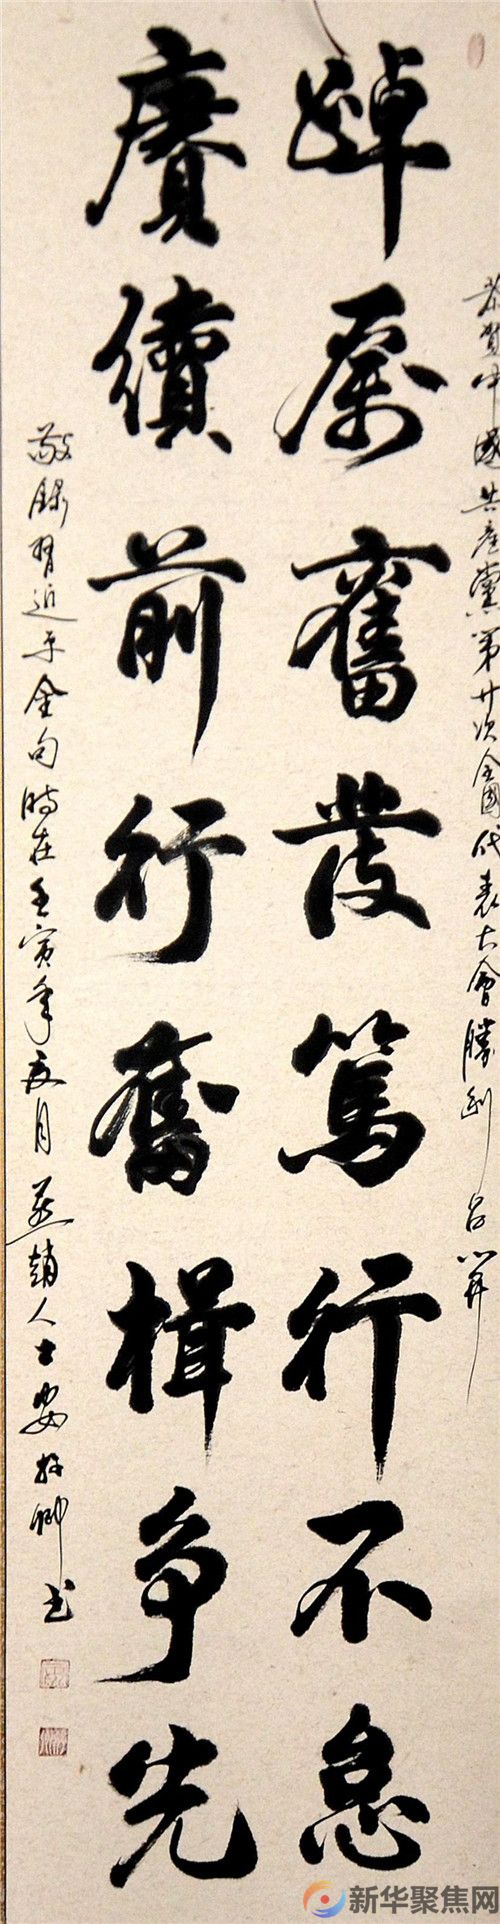 恭賀中國共產黨第廿次全國代表大會勝利召開
踔厲奮發篤行不怠
賡續前行奮楫争先
敬録習近平金句時在壬寅年夏月燕趙人士安
書
新华聚焦网